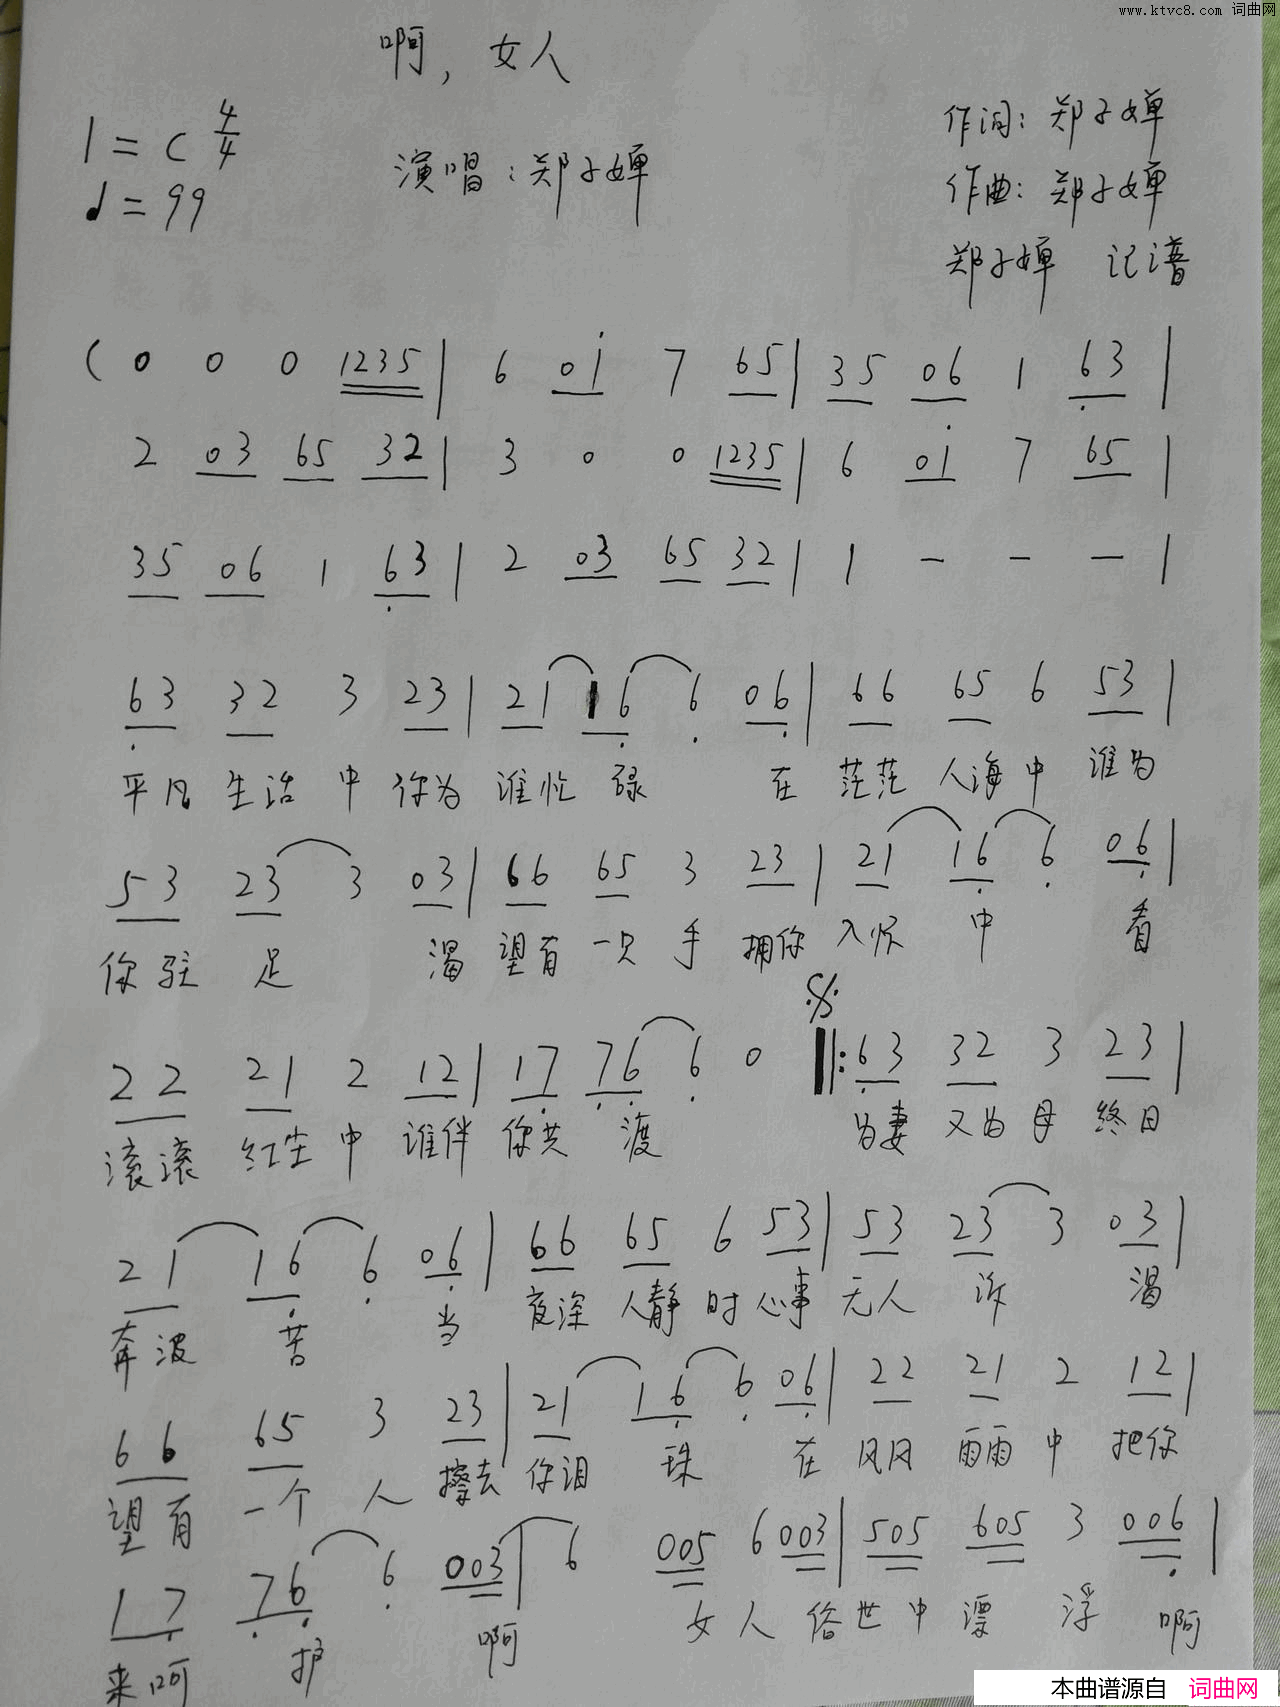 www.ktvc8.com 词曲网
啊, 女人
1=C 4/4
♩=99
演唱:郑子婵
作词:郑子婵
作曲:郑子婵
郑子婵 记谱
( 0 0 0 1235 | 6 0i 7 65 | 35 06 1 63 |
2 03 65 32 | 3 0 0 1235 | 6 0i 7 65 |
35 06 1 63 | 2 03 65 32 | 1 - - - |
63 32 3 23 | 21 16 6 06 | 66 65 6 53 |
平凡 生活 中 你为 谁忙 碌 在 茫茫 人海 中 谁为
53 23 3 03 | 66 65 3 23 | 21 16 6 06 |
你驻 足 渴 望有 一只 手 拥你 入怀 中 看
22 21 2 12 | 17 76 6 0 ‖: 63 32 3 23 |
滚滚 红尘 中 谁伴 你共 渡 为妻 又为 母 终日
21 16 6 06 | 66 65 6 53 | 53 23 3 03 |
奔波 苦 当 夜深 人静 时 心事 无人 诉 渴
66 65 3 23 | 21 16 6 06 | 22 21 2 12 |
望有 一个 人 擦去 你泪 珠 在 风风 雨雨 中 把你
17 76 6 003 | 6 005 6 003 | 505 605 3 006 |
来呵 护 啊 女 人 俗 世 中 漂 浮 啊
本曲谱源自 词曲网